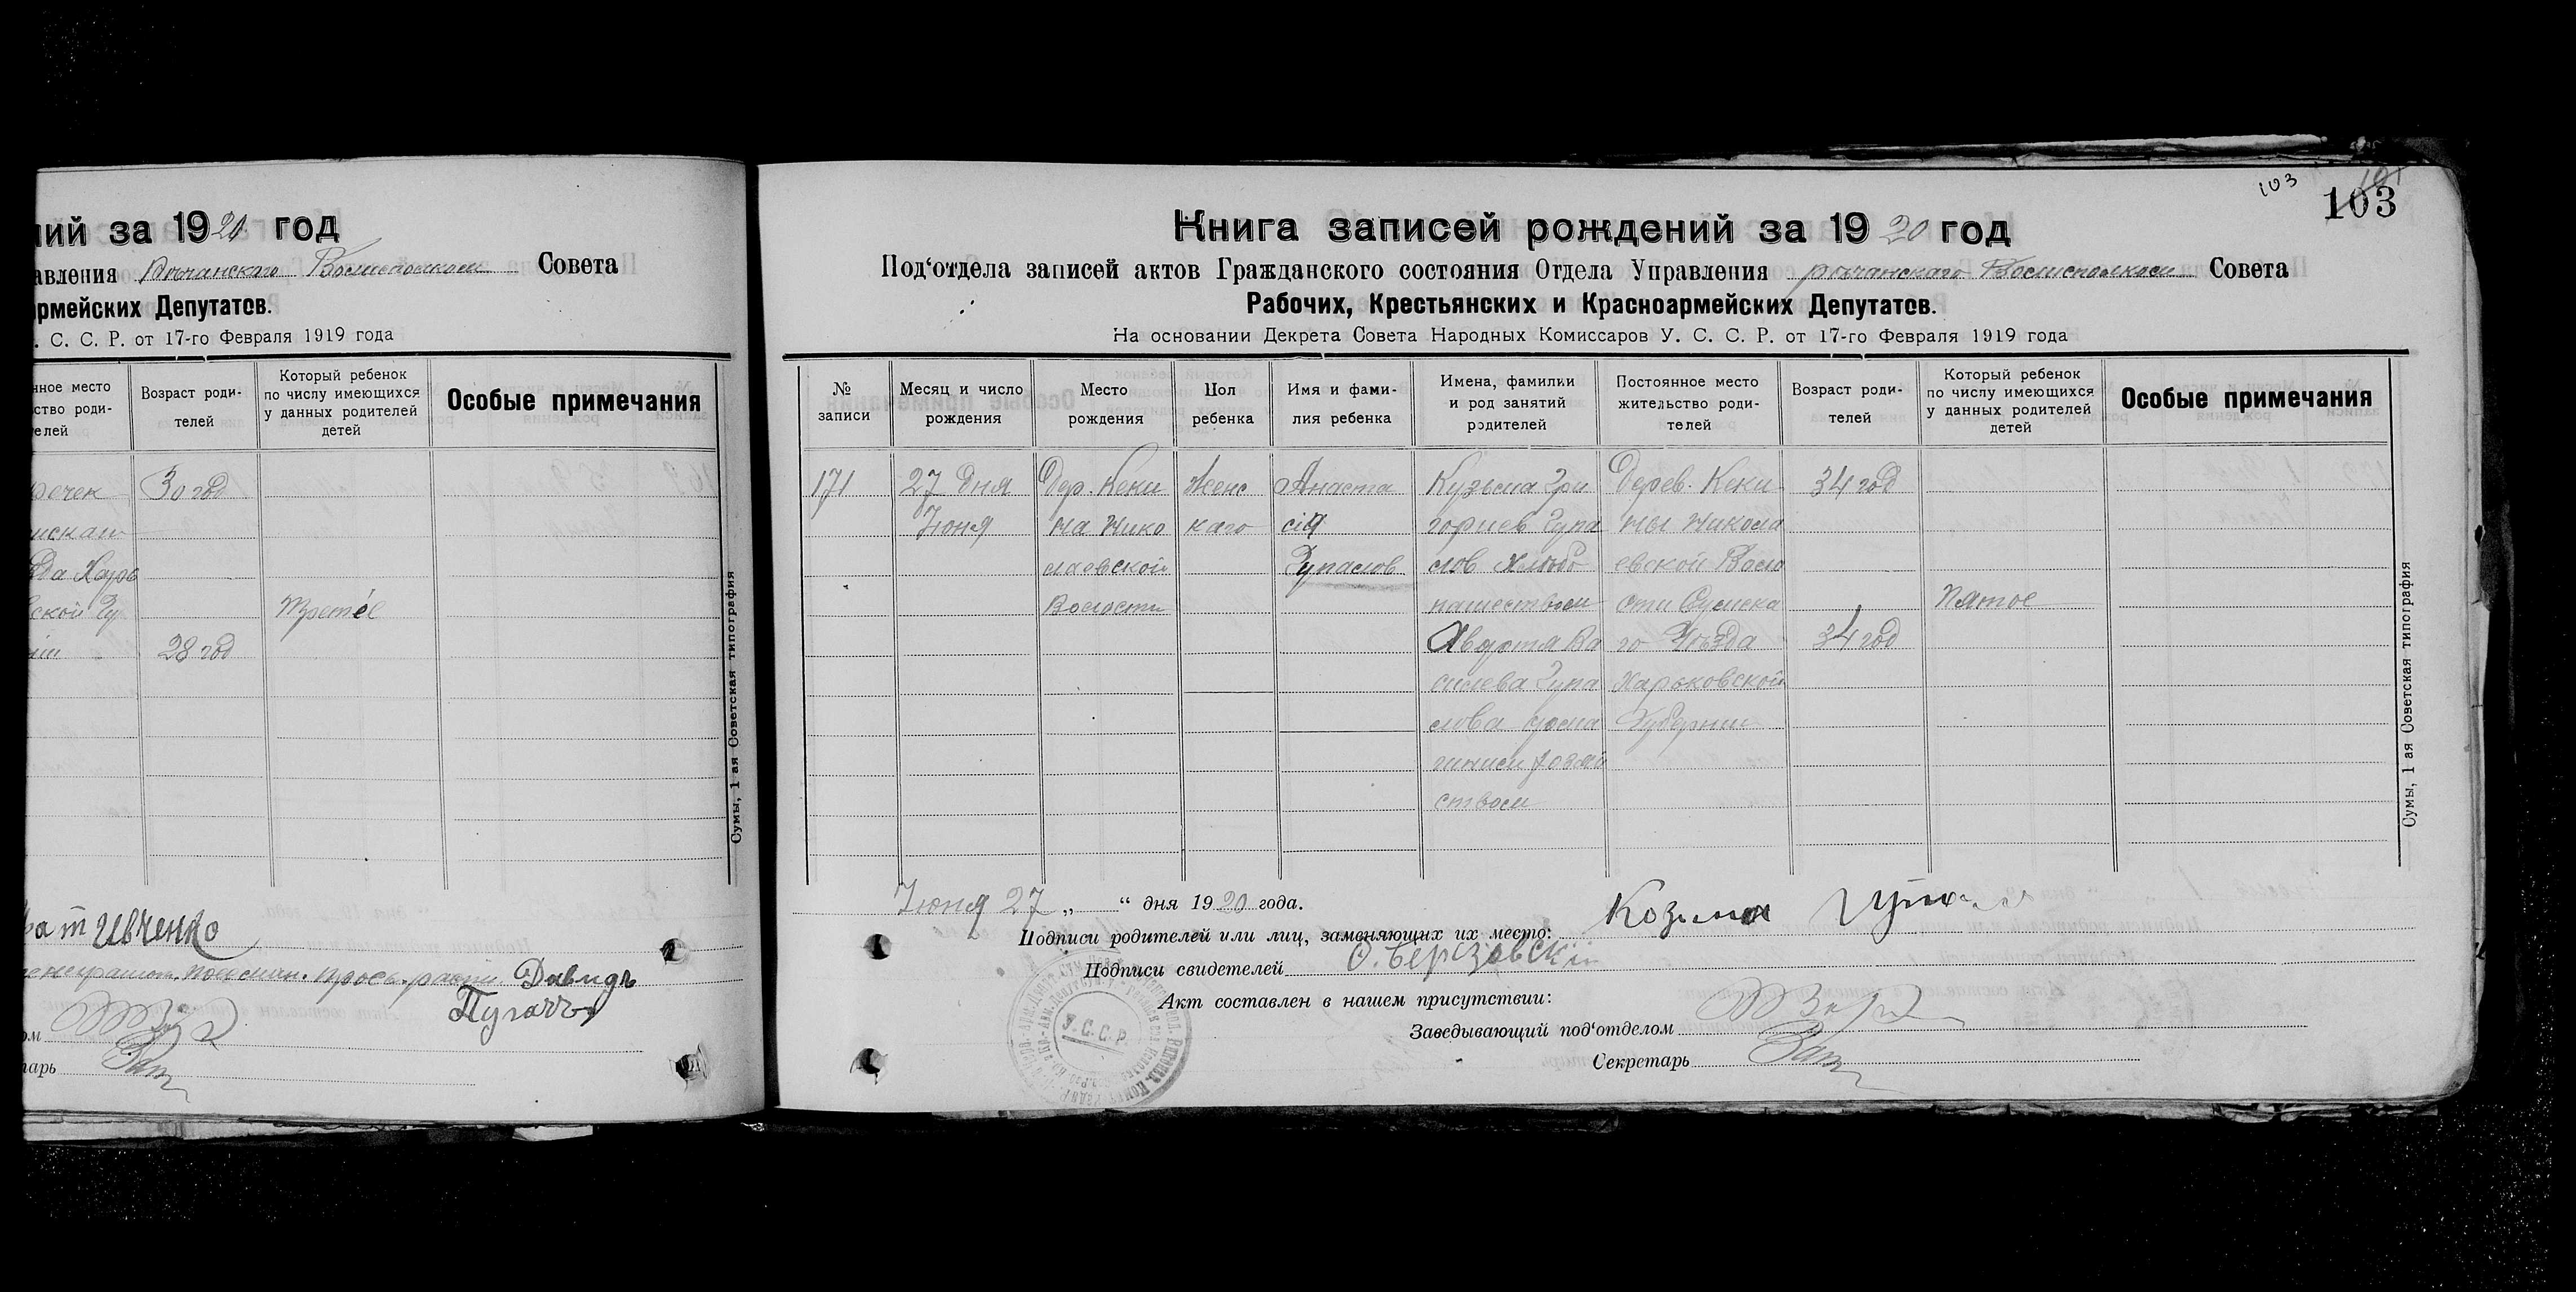 ний за 1920 год
авления Речанского Волисполкома Совета
армейских Депутатов.
. С. С. Р. от 17-го Февраля 1919 года
нное место
ство роди-
телей
Возраст роди-
телей
Который ребенок
по числу имеющихся
у данных родителей
детей
Особые примечания
речек 30 год
да Харь
ской Гу Третее
28 год
Сумы, 1 ая Советская типография
Ивченко
Давидъ
Пугачъ
ом
тарь
103
103
Книга записей рождений за 1920 год
Под‘отдела записей актов Гражданского состояния Отдела Управления Речанского Волисполкома Совета
Рабочих, Крестьянских и Красноармейских Депутатов.
На основании Декрета Совета Народных Комиссаров У. С. С. Р. от 17-го Февраля 1919 года
№
записи
Месяц и число
рождения
Место
рождения
Пол
ребенка
Имя и фами-
лия ребенка
Имена, фамилии
и род занятий
родителей
Постоянное место
жительство роди-
телей
Возраст роди-
телей
Который ребенок
по числу имеющихся
у данных родителей
детей
Особые примечания
171 27 дня Дер. Кеки Женс Анаста Кузьма Гри Дерев. Кеки 34 год
Июня на Нико каго сія горьев Гупа ны Никола
лаевской Гупалов лов Хлебо евской Воло
Волости пашеством сти Сумска Пятое
Ва го Уезда 34 год
сильева Гупа Харьковской
лова дома Губернии
ством
Сумы, 1 ая Советская типография
Июня 27 „ “ дня 1920 года.
Подписи родителей или лиц, заменяющих их место: Козма
Подписи свидетелей О. Березовскій
Акт составлен в нашем присутствии:
Заведывающий под‘отделом
Секретарь
У.С.С.Р.